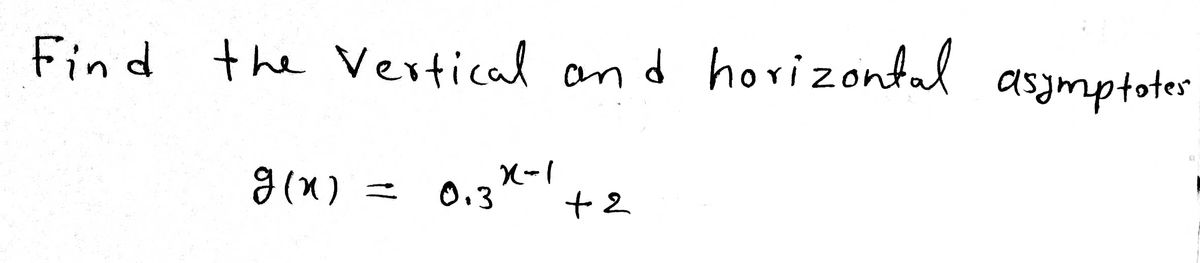 Find the Vertical and horizontal asymptotes
g(x) = 0.3^{x-1} + 2